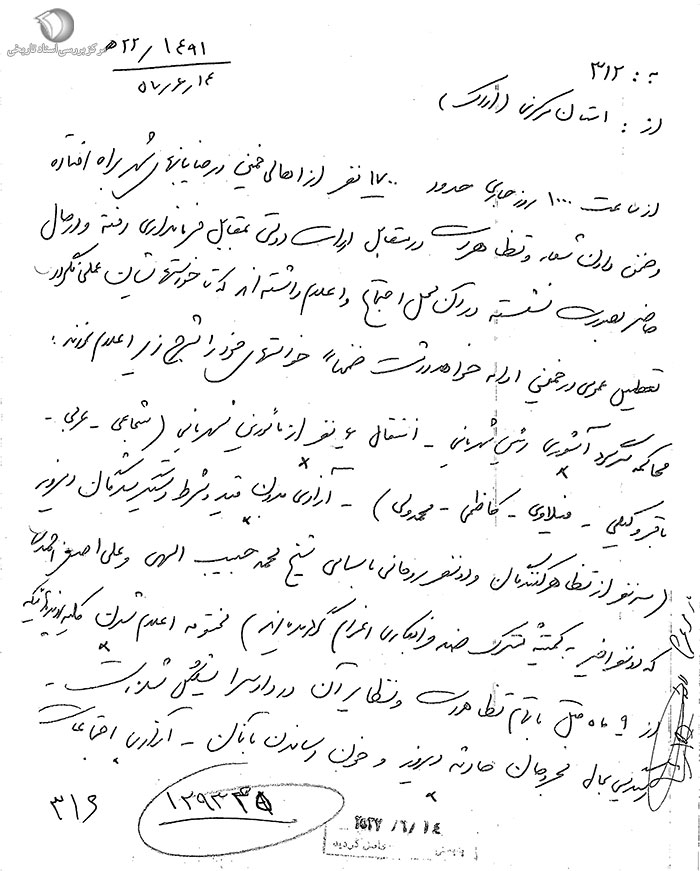 مرکز بررسی اسناد تاریخی
۲۲/۱۴۹۱ ه‍
۵۷/۶/۱۴
به : ۳۱۲
از : استان مرکزی (اراک)
از ساعت ۱۰۰۰ روز جاری حدود ۱۷۰۰ نفر از اهالی خمین در خیابانهای شهر براه افتاده
و ضمن دادن شعار و تظاهرات در مقابل ادارات دولتی بمقابل فرمانداری رفته و در حال
حاضر بصورت نشسته در آن محل اجتماع و اعلام داشته‌اند که تا خواستهایشان عملی نگردد
تعطیل عمومی در خمین ادامه خواهد داشت ضمناً خواستهای خود را بشرح زیر اعلام نمودند :
محاکمه سرگرد آشوری رئیس شهربانی - انتقال ۶ نفر از مامورین شهربانی (شجاعی - عربی -
باقر وکیلی - فیلاوی - کاظمی - محمدولی) - آزادی بدون قید و شرط دستگیرشدگان دیروز
(سه نفر از تظاهرکنندگان و دو نفر روحانی باسامی شیخ محمد حبیب الهی و علی اصغر احمدی
که دو نفر اخیر به کمیته مشترک ضد خرابکاری اعزام گردیده‌اند) مختومه اعلام شدن کلیه پرونده‌هائیکه
از ۹ ماه قبل باتهام تظاهرات و نظایر آن در دادسرا تشکیل شده است -
رسیدگی بحال مجروحان حادثه دیروز و خون رساندن بآنان - آزادی اجتماعات
۳۱۶
۱۲۹۳۴۵
۲۵۳۷/۶/۱۴